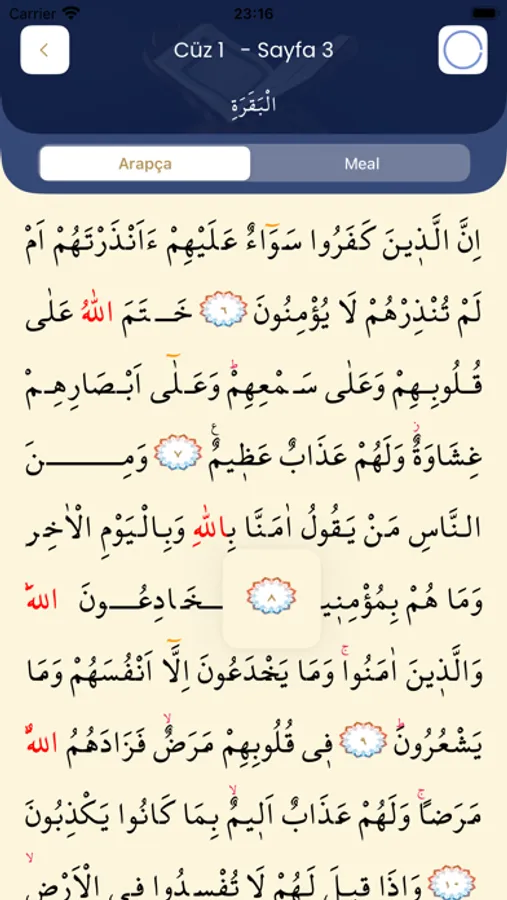 Carrier 23:16
Cüz 1 - Sayfa 3
الْبَقَرَةِ
Arapça Meal
اِنَّ الَّذ۪ينَ كَفَرُوا سَوَٓاءٌ عَلَيْهِمْ ءَاَنْذَرْتَهُمْ اَمْ
لَمْ تُنْذِرْهُمْ لَا يُؤْمِنُونَ ٦ خَـتَمَ اللّٰهُ عَلٰى
قُـلُوبِـهِمْ وَعَلٰى سَـمْعِهِمْۜ وَعَـلٰٓى اَبْـصَارِهِـمْ
غِشَاوَةٌۘ وَلَهُمْ عَذَابٌ عَظ۪يمٌ۟ ٧ وَمِـــــنَ
النَّاسِ مَنْ يَقُولُ اٰمَنَّا بِاللّٰهِ وَبِالْيَوْمِ الْاٰخِرِ
وَمَا هُمْ بِمُؤْمِن۪ي ٨ ـخَـادِعُــونَ اللّٰهَ
وَالَّذ۪ينَ اٰمَنُواۚ وَمَا يَخْدَعُونَ اِلَّٓا اَنْفُسَهُمْ وَمَا
يَشْعُرُونَۜ ٩ ف۪ي قُلُوبِهِمْ مَرَضٌۙ فَزَادَهُمُ اللّٰهُ
مَرَضًاۚ وَلَهُمْ عَذَابٌ اَل۪يمٌۙ بِمَا كَانُوا يَكْذِبُونَ
١٠ وَاِذَا ق۪يلَ لَهُمْ لَا تُفْسِدُوا فِي الْاَرْضِۙ